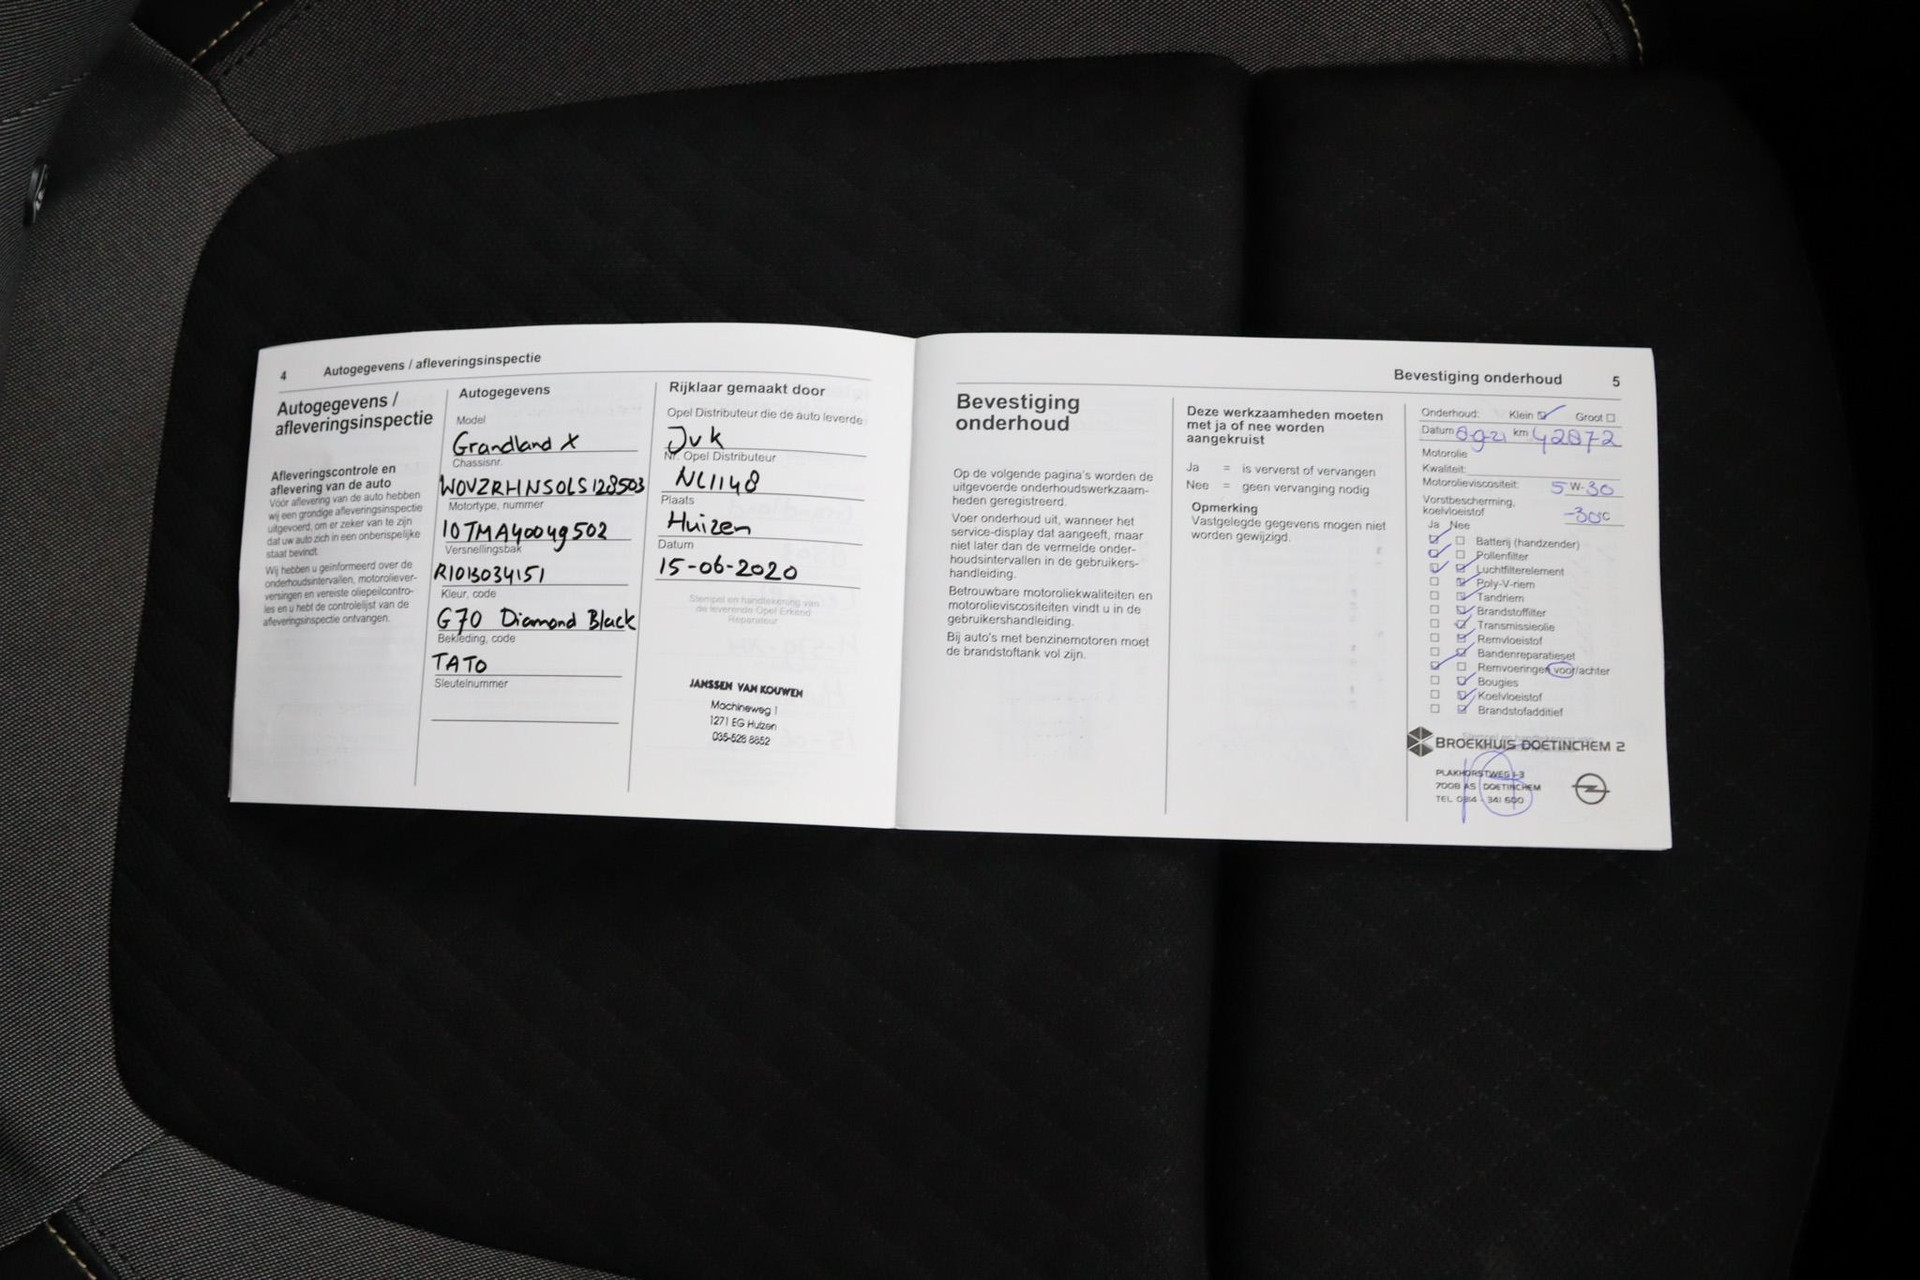 4 Autogegevens / afleveringsinspectie
Autogegevens /
afleveringsinspectie
Afleveringscontrole en
aflevering van de auto
Vóór aflevering van de auto hebben
wij een grondige afleveringsinspectie
uitgevoerd, om er zeker van te zijn
dat uw auto zich in een onberispelijke
staat bevindt.
Wij hebben u geïnformeerd over de
onderhoudsintervallen, motoroliever-
versingen en vereiste oliepeilcontro-
les en u hebt de controlelijst van de
afleveringsinspectie ontvangen.
Autogegevens
Model
Grandland X
Chassisnr.
W0VZRHNS0LS128503
Motortype, nummer
10TMAY0049502
Versnellingsbak
R1013034151
Kleur, code
G70 Diamond Black
Bekleding, code
TATO
Sleutelnummer
Rijklaar gemaakt door
Opel Distributeur die de auto leverde
Jvk
Nr. Opel Distributeur
NL1148
Plaats
Huizen
Datum
15-06-2020
Stempel en handtekening van
de leverende Opel Erkend
Reparateur
JANSSEN VAN KOUWEN
Machineweg 1
1271 EG Huizen
035-528 8852
Bevestiging onderhoud 5
Bevestiging
onderhoud
Op de volgende pagina's worden de
uitgevoerde onderhoudswerkzaam-
heden geregistreerd.
Voer onderhoud uit, wanneer het
service-display dat aangeeft, maar
niet later dan de vermelde onder-
houdsintervallen in de gebruikers-
handleiding.
Betrouwbare motoroliekwaliteiten en
motorolieviscositeiten vindt u in de
gebruikershandleiding.
Bij auto's met benzinemotoren moet
de brandstoftank vol zijn.
Deze werkzaamheden moeten
met ja of nee worden
aangekruist
Ja = is ververst of vervangen
Nee = geen vervanging nodig
Opmerking
Vastgelegde gegevens mogen niet
worden gewijzigd.
Onderhoud: Klein Groot
Datum 8-9-21 km 42872
Motorolie
Kwaliteit:
Motorolieviscositeit: 5 W-30
Vorstbescherming,
koelvloeistof -30c
Ja Nee
Batterij (handzender)
Pollenfilter
Luchtfilterelement
Poly-V-riem
Tandriem
Brandstoffilter
Transmissieolie
Remvloeistof
Bandenreparatieset
Remvoeringen voor/achter
Bougies
Koelvloeistof
Brandstofadditief
BROEKHUIS DOETINCHEM 2
PLAKHORSTWEG 1-3
7008 AS DOETINCHEM
TEL. 0314 - 341 600